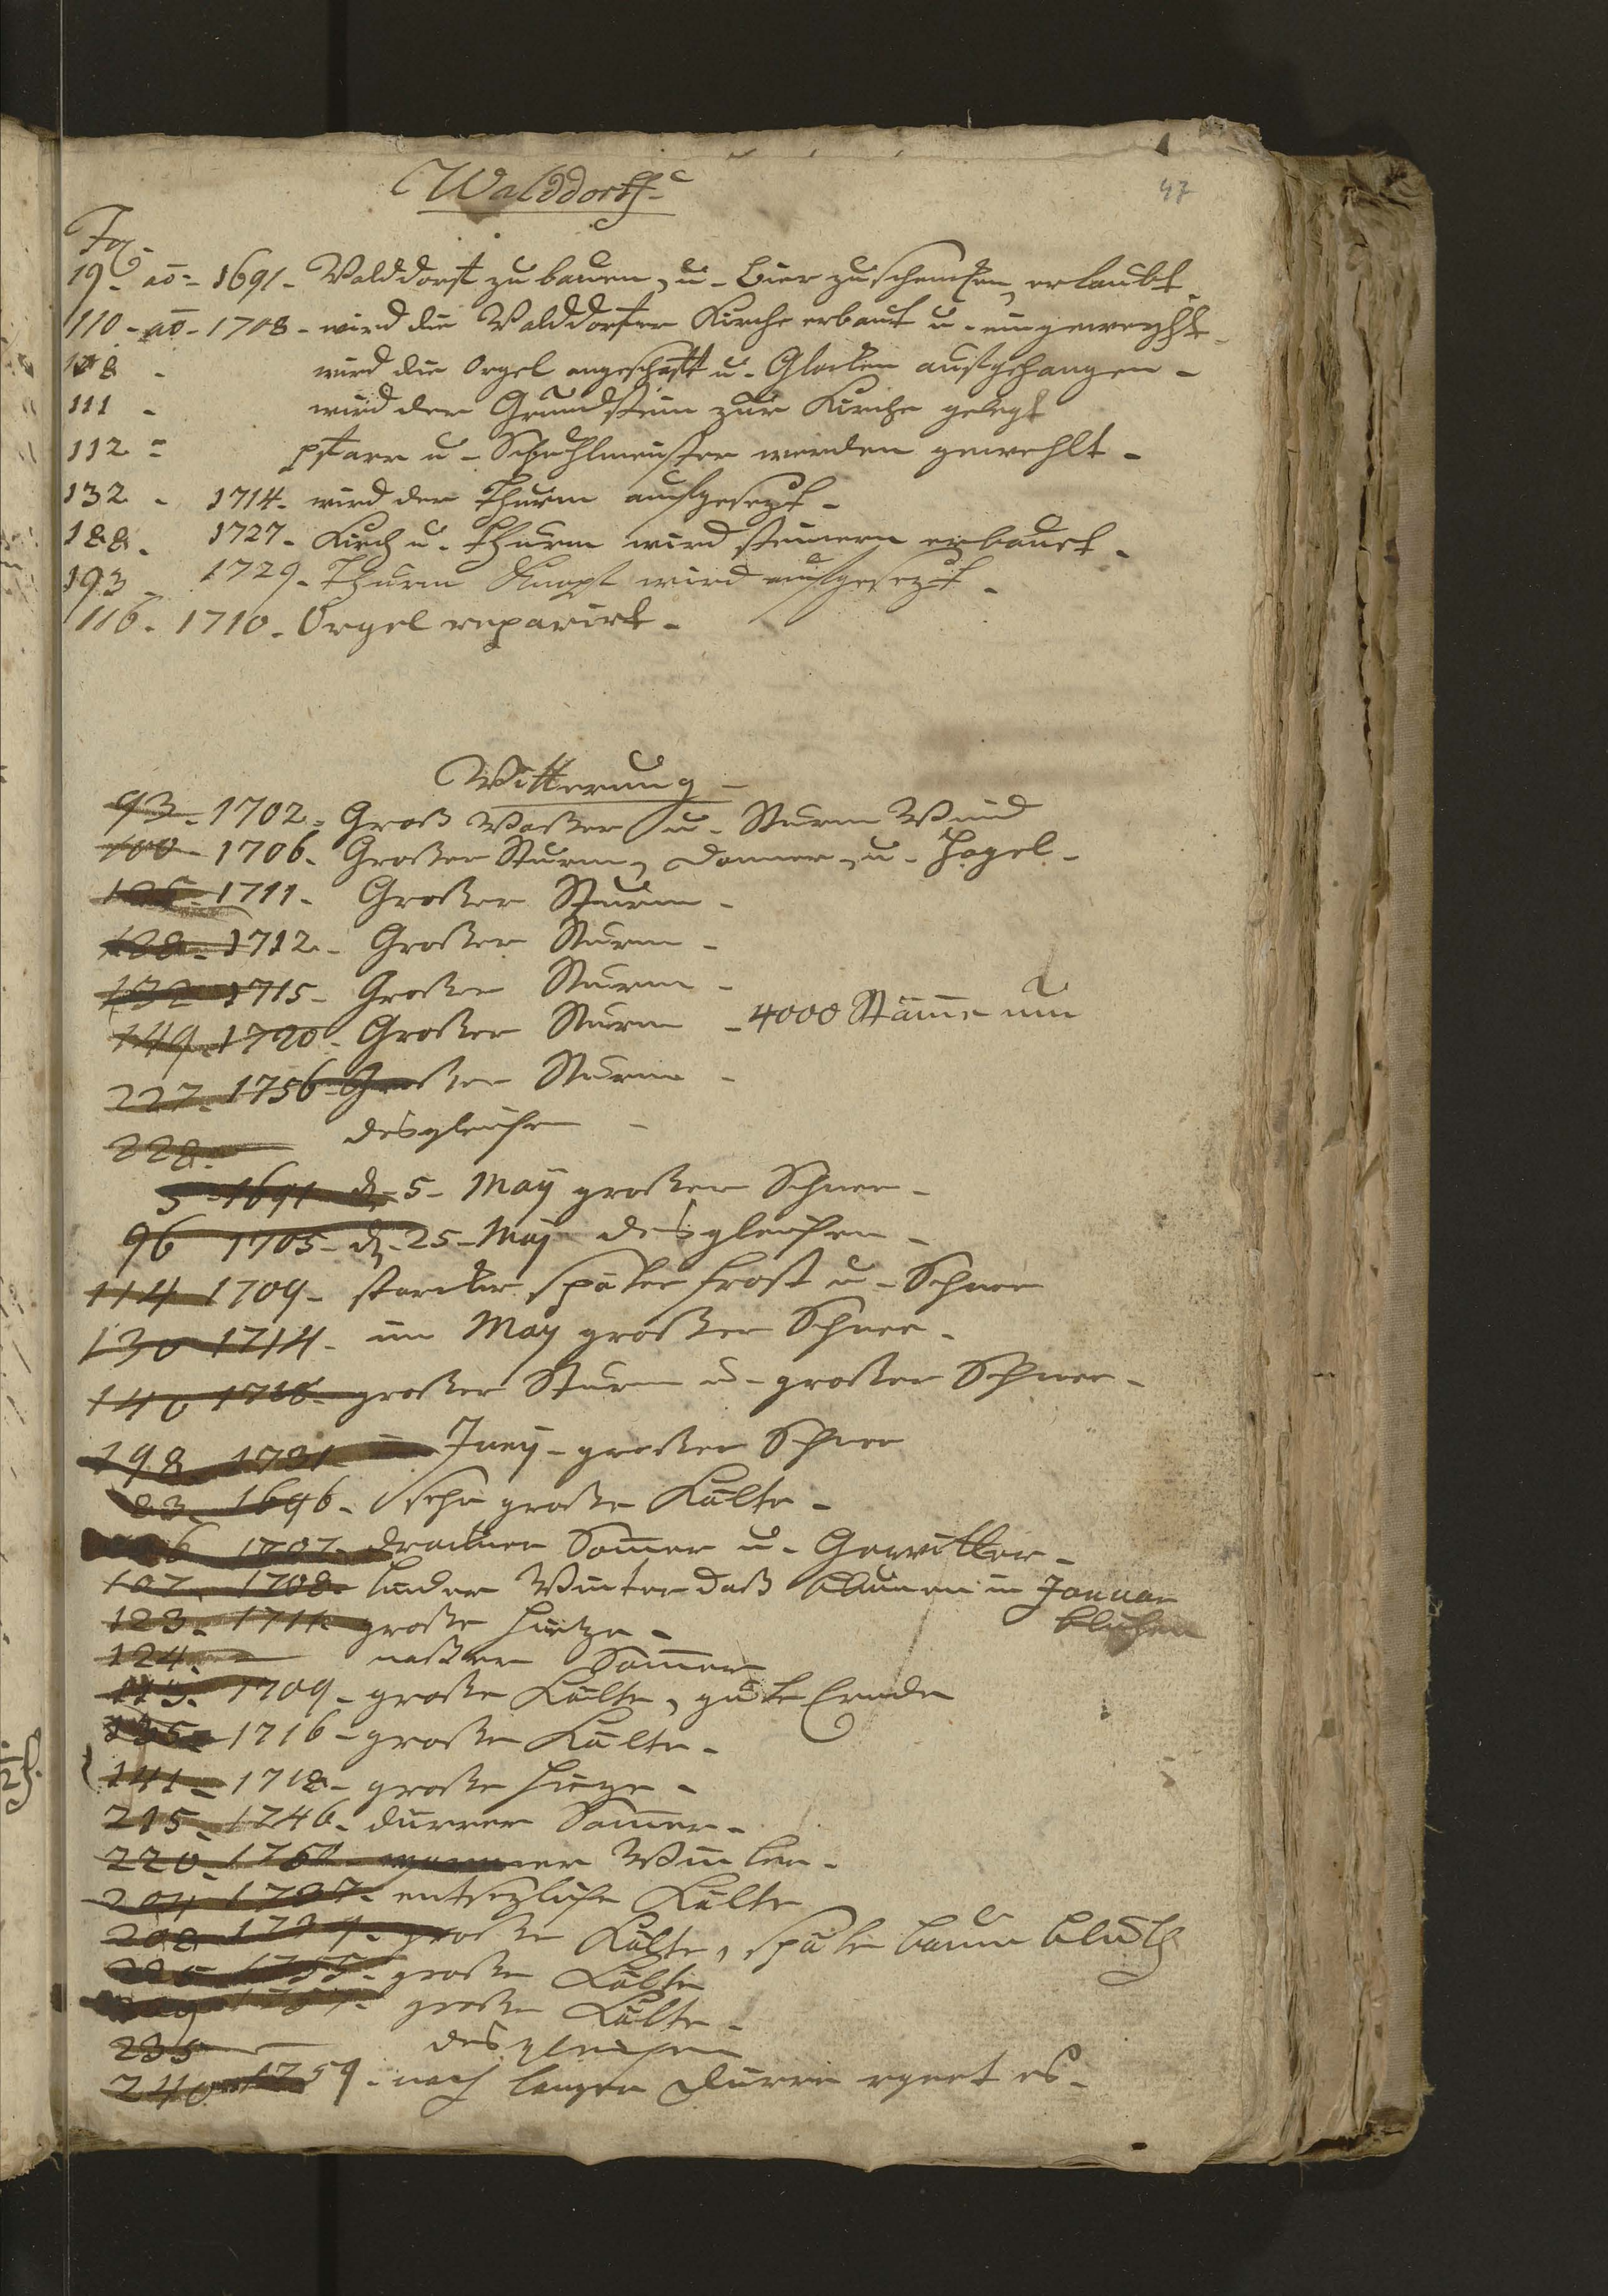 Walddorff
47
Fol.
19. aō. 1691. Walddorf zu bauen, u. Bier zu schencken, erlaubt.
110. aō. 1708. wird die Walddorfer Kirche erbaut u. eingeweyht.
108. wird die Orgel angeschaft u. Glocken aufgehangen.
111. wird der Grundstein zur Kirche gelegt
112. pfarr u. Schuhlmeister werden gewehlt.
132. 1714. wird der Thurm aufgesezt.
188. 1727. Kirch u. Thurm wird steinern erbauet.
193. 1729. Thurm Knopf wird aufgesezt.
116. 1710. Orgel reparirt.
Witterung
93. 1702. Groß Waßer u. Sturm Wind
100. 1706. Großer Sturm, Donner, u. Hagel.
1711. Großer Sturm.
128. 1712. Großer Sturm.
132 1715. Großer Sturm.
149. 1720. Großer Sturm. 4000 Stāme um
227. 1756. Großer Sturm.
228. desgleichen
5. 1691. d. 5. May großer Schnee.
96 1705. d. 25. May desgleichen.
114 1709. starcker später frost u. Schnee
130 1714. im May großer Schnee.
140 großer Sturm u. großer Schnee.
198. 1731 Juny. großer Schnee
83. 1696. sehr große Kälte.
1707. drockner Som̄er u. Gewitter.
107. 1708. linder Winter daß Blumen in Januar
blühen
123. 1711. große hietze.
124. naßer Som̄er
113. 1709. große Kälte, gute Ernde
135. 1716. große Kälte.
141. 1718. große hieze.
215. 1746. dürrer Som̄er.
220. warmer Winter.
204 1737. entsezliche Kälte
208 große Kälte, späte baum blüth
225 1755. große Kälte
große Kälte.
235 desgleichen
240 1759. nach langer Dürre regnet es.